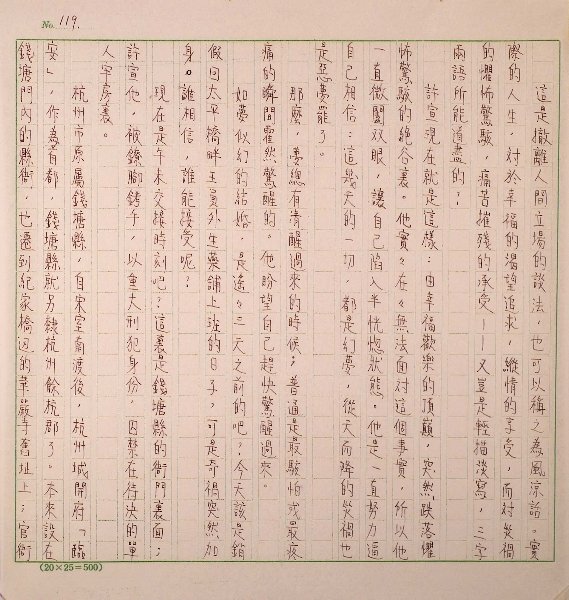 No. 119.
這是撤離人間立場的談法，也可以稱之為風涼話。實
際的人生，對於幸福的渴望追求，縱情的享受，而對災禍
的懼怖驚駭，痛苦摧殘的承受——又豈是輕描淡寫，三字
兩語所能道盡的；
許宣現在就是這樣：由幸福歡樂的頂巔，突然跌落懼
怖驚駭的絕谷裏。他實々在々無法面對這個事實，所以他
一直微闔双眼，讓自己陷入半恍惚狀態。他是一直努力逼
自己相信：這幾天的一切，都是幻夢，從天而降的災禍也
是惡夢罷了。
那麼，夢總有清醒過來的時候；普通是最駭怕或最疼
痛的瞬間霍然驚醒的。他盼望自己趕快驚醒過來。
如夢似幻的結婚，是遙々三天之前的吧？今天該是銷
假回太平橋畔王員外生藥舖上班的日子，可是奇禍突然加
身。誰相信，誰能接受呢？
現在是午未交接時刻吧？這裏是錢塘縣的衙門裏面；
許宣他，被鐐腳銬手，以重大刑犯身份，囚禁在待決的單
人牢房裏。
杭州市原屬錢塘縣，自宋室南渡後，杭州城開府「臨
安」，作為首都，錢塘縣就另隸杭州餘杭郡了。本來設在
錢塘門內的縣衙，也遷到紀家橋迎的華嚴寺舊址上；官衙
(20×25=500)